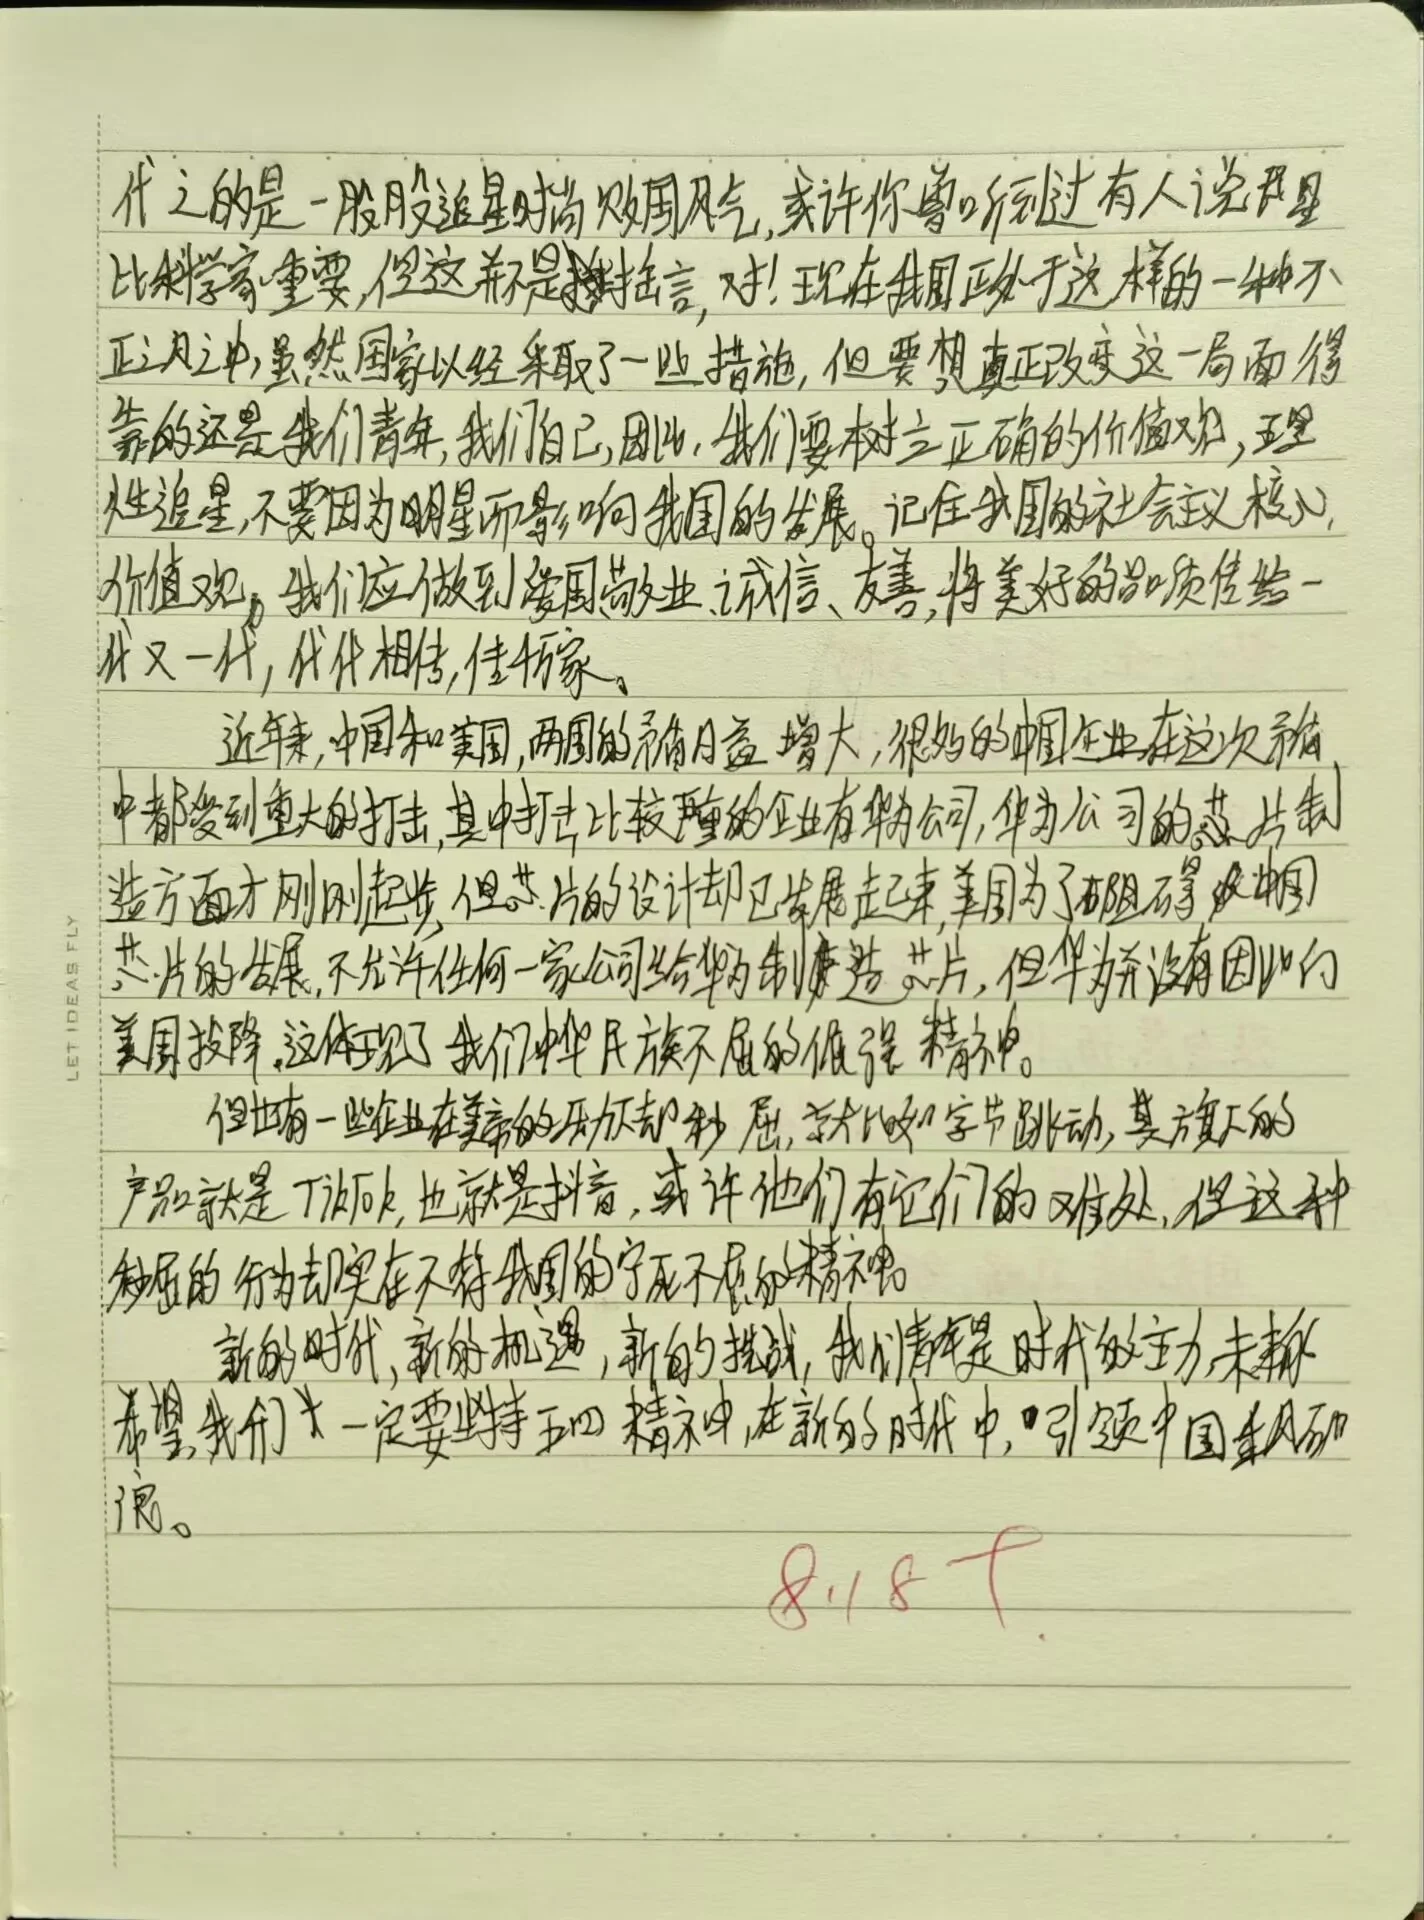 代之的是一股股追星时尚败国风气，或许你曾听到过有人说明星
比科学家重要，但这并不是谣言，对！现在我国正处于这样的一种不
正之风之中，虽然国家以经采取了一些措施，但要想真正改变这一局面得
靠的还是我们青年，我们自己，因此，我们要树立正确的价值观，理
性追星，不要因为明星而影响我国的发展。记住我国的社会主义核心
价值观。我们应做到爱国、敬业、诚信、友善，将美好的品质传给一
代又一代，代代相传，传千万家。
近年来，中国和美国，两国的矛盾日益增大，很多的中国企业在这次矛盾
中都受到重大的打击，其中打击比较严重的企业有华为公司，华为公司的芯片制
造方面才刚刚起步，但芯片的设计却已发展起来，美国为了阻碍中国
芯片的发展，不允许任何一家公司给华为制造芯片，但华为并没有因此向
美国投降，这体现了我们中华民族不屈的倔强精神。
但也有一些企业在美帝的压力下却屈，就比如字节跳动，其旗下的
产品就是TikTok，也就是抖音，或许他们有它们的难处，但这种
屈的行为却实在不符我国的宁死不屈的精神。
新的时代，新的机遇，新的挑战，我们青年是时代的主力，未来的
希望，我们一定要坚持五四精神，在新的时代中，引领中国乘风破
浪。
8.18
LET IDEAS FLY